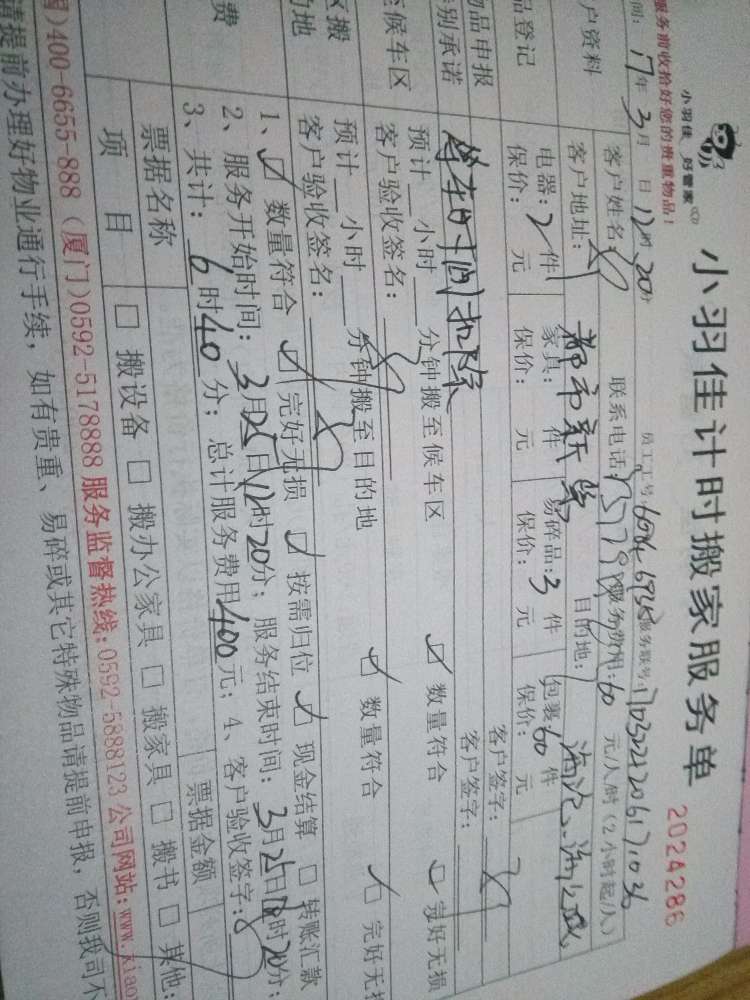 小羽佳 好管家
小羽佳计时搬家服务单
2024286
服务前收拾好您的贵重物品！
间：17年3月 日12时20分 员工工号： 服务联号：
户资料
客户姓名： 联系电话： 服务费用：60 元/人/时（2小时起/人）
客户地址： 都市新 目的地：
品登记
电器：2件 家具： 件 易碎品：3件 包裹60件
保价： 元 保价： 元 保价： 元 保价： 元
物品申报
特别承诺
等车时间扣除
客户签字：
客户签字：
至候车区
预计 小时 分钟搬至候车区 数量符合 完好无损
客户验收签名：
区搬
的地
预计 小时 分钟搬至目的地 数量符合 完好无损
客户验收签名：
费
1、 数量符合 完好无损 按需归位 现金结算 转账汇款
2、服务开始时间：3月25日12时20分；服务结束时间：3月25日 时20分；
3、共计：6时40分；总计服务费用400元；4、客户验收签字：
票据名称 票据金额
项目 搬设备 搬办公家具 搬家具 搬书 其他：
400-6655-888（厦门)0592-5178888服务监督热线：0592-5888123公司网站：www.xiao
请提前办理好物业通行手续，如有贵重、易碎或其它特殊物品请提前申报，否则我司不